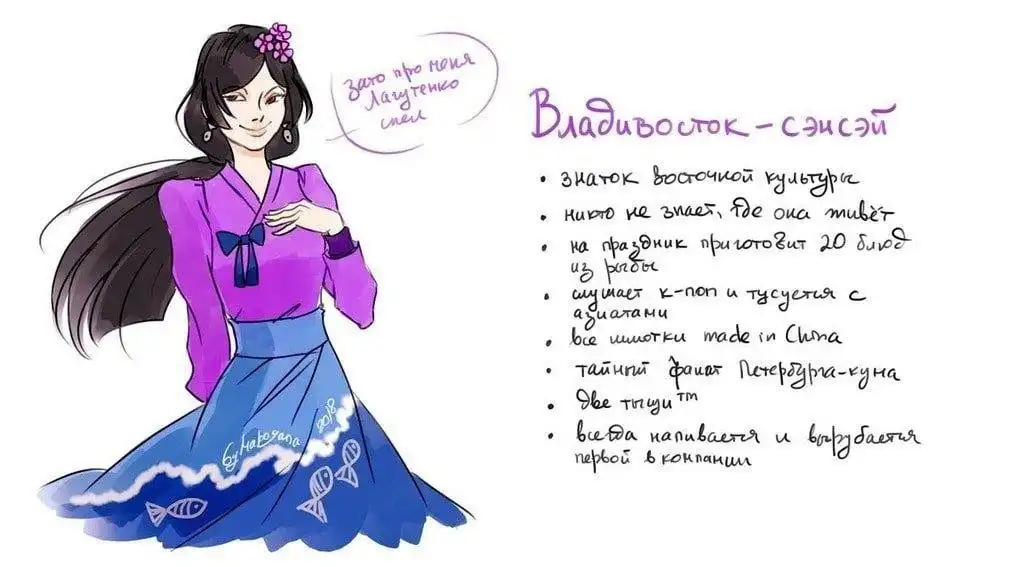 зато про меня
Лагутенко
спел
Владивосток-сэнсэй
• знаток восточной культуры
• никто не знает, где она живёт
• на праздник приготовит 20 блюд
из рыбы
• слушает к-поп и тусуется с
азиатами
• все шмотки made in China
• тайный фанат Петербурга-куна
• две тыщи™
• всегда напивается и вырубается
первой в компании
by Marosana 2018